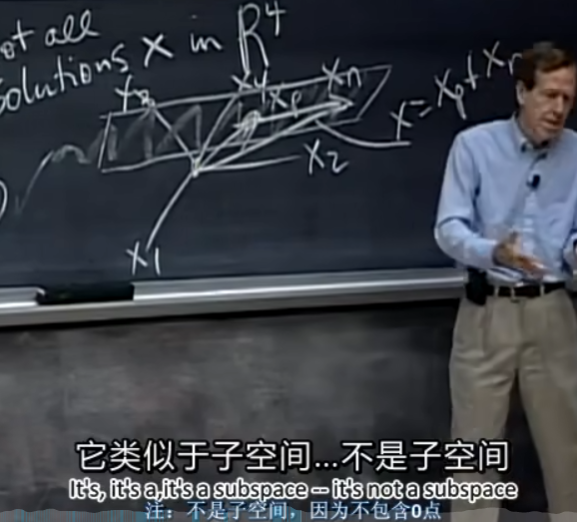 ot all
Solutions x in R⁴
x₃ x₄ xₚ xₙ x = xₚ + xₙ
x₂
x₁
它类似于子空间...不是子空间
It's, it's a,it's a subspace -- it's not a subspace
注：不是子空间，因为不包含0点